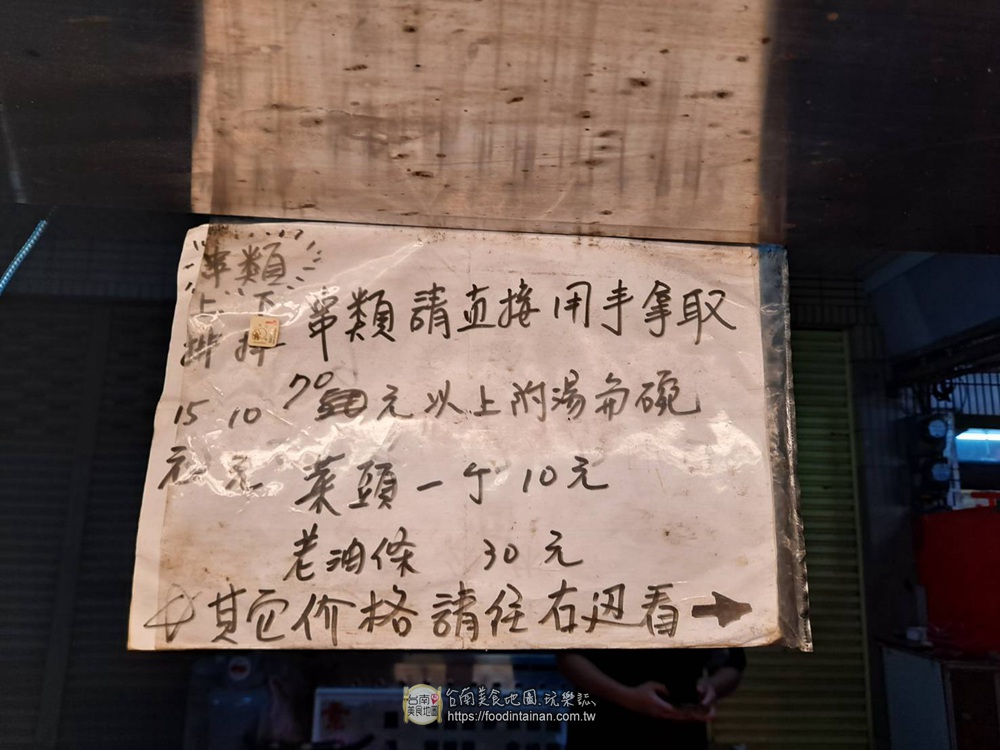 串類
上排 下排
15元 10元
串類請直接用手拿取
70元以上附湯角碗
菜頭一个10元
老油條 30元
其它价格請往右边看→
台南美食地圖
台南美食地圖.玩樂誌
https://foodintainan.com.tw